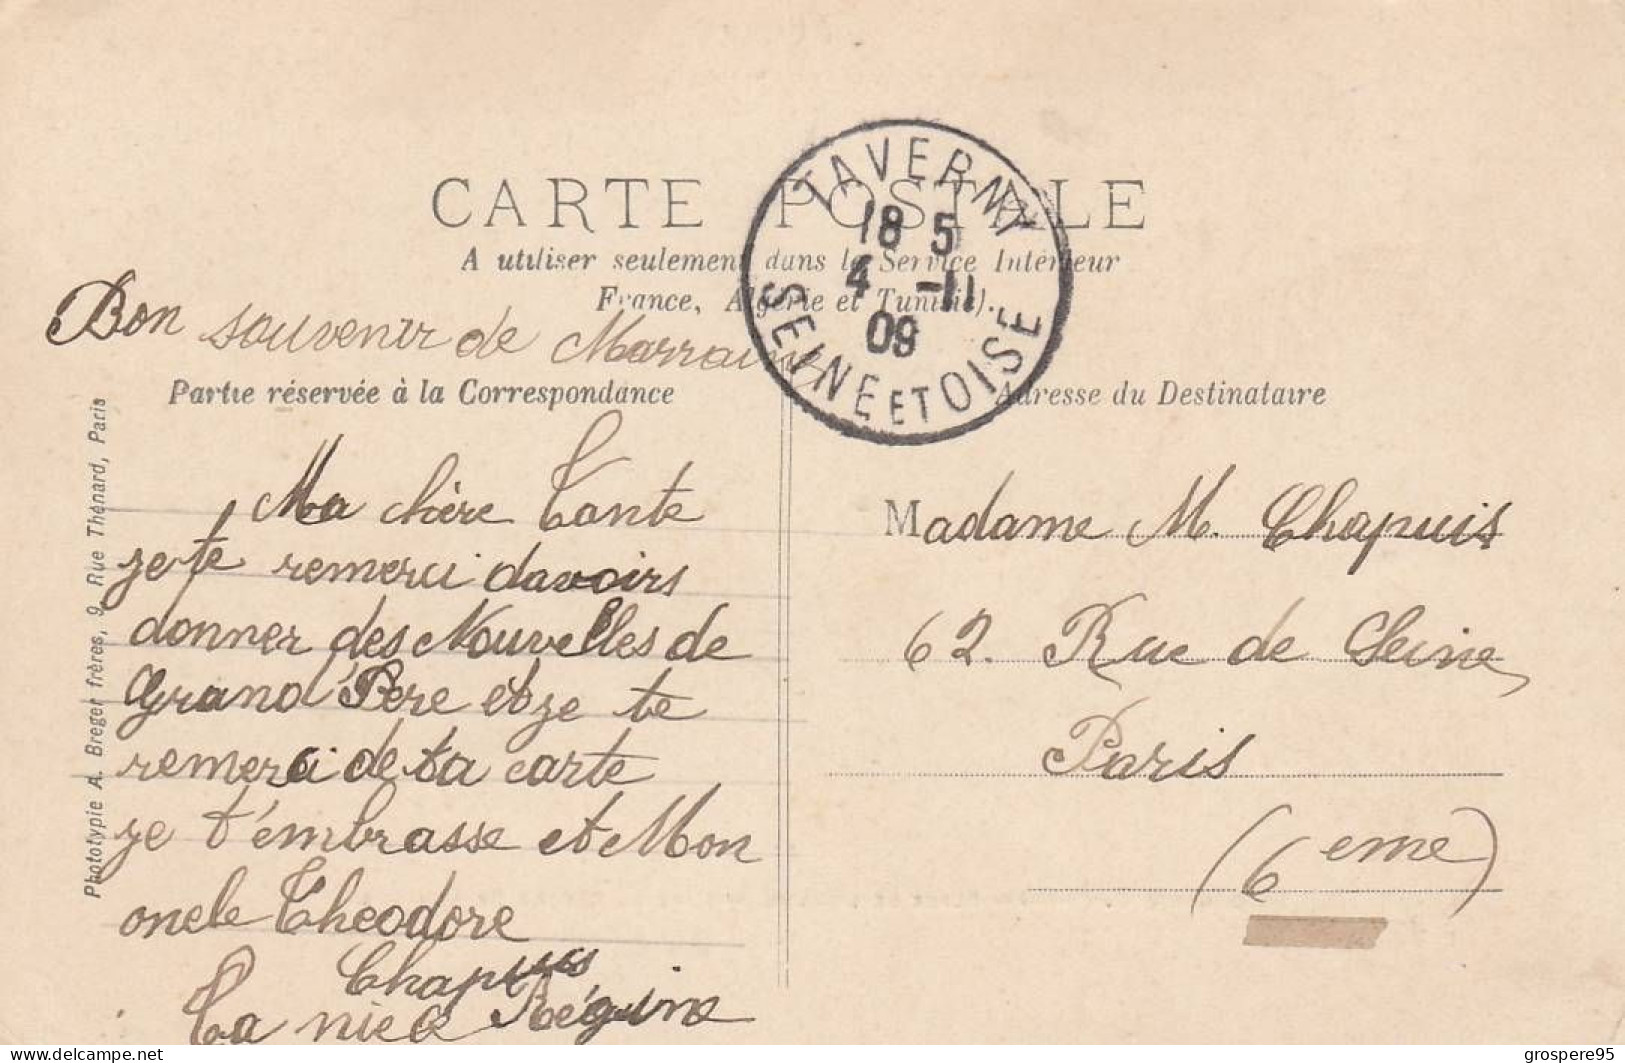 CARTE POSTALE
A utiliser seulement dans le Service Intérieur
France, Algérie et Tunisie).
TAVERNY
18 5
4 -11
09
SEINE ET OISE
Bon souvenir de Marraine
Partie réservée à la Correspondance
Adresse du Destinataire
Ma chère Tante
je te remerci davoirs
donner des Nouvelles de
Grand Père et je te
remerci de ta carte
je t'embrasse et Mon
oncle Theodore
Chapuis
Ta niece Régine
Madame M. Chapuis
62. Rue de Seine
Paris
(6 eme)
Phototypie A. Breger frères, 9, Rue Thénard, Paris
grospere95